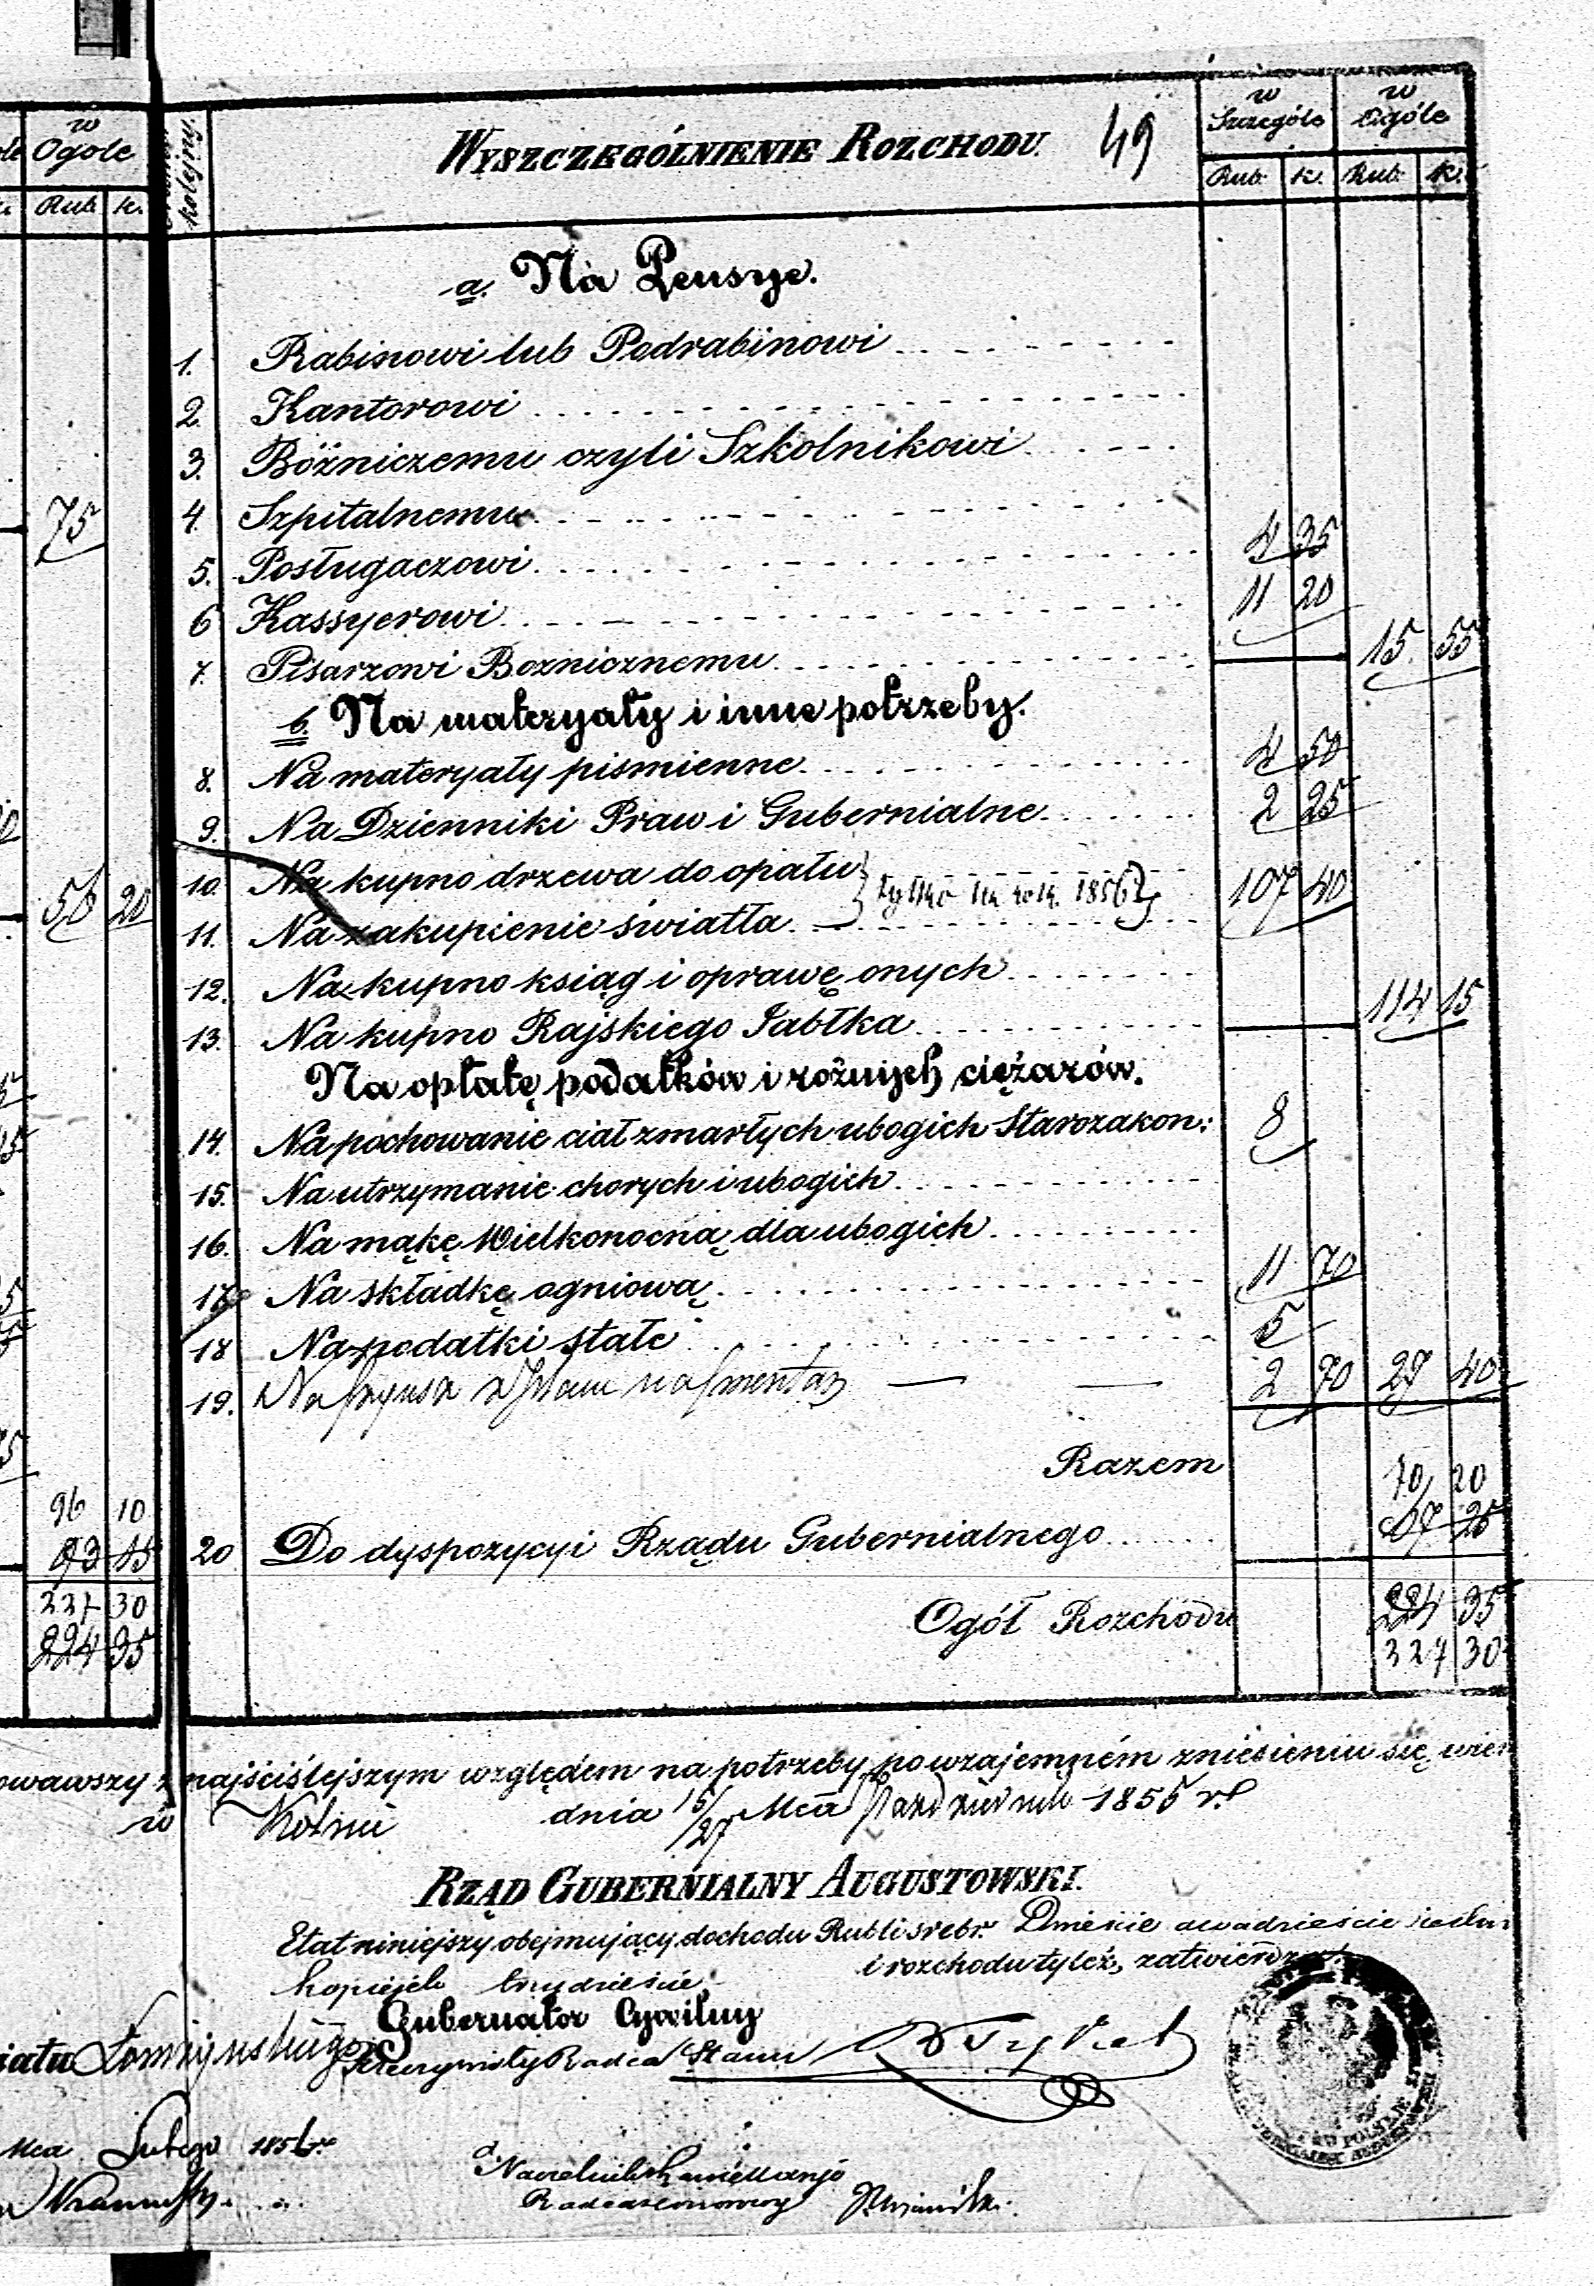 w Ogole
Rub. k.
75
56 20
96 10
93 15
227 30
224 35
kolejny.
WYSZCZEGÓLNIENIE ROZCHODU. 49
w Szczególe
w Ogóle
Rub. k. Rub. k.
a. Na Pensye.
1. Rabinowi lub Podrabinowi
2. Kantorowi
3. Bóżniczemu czyli Szkolnikowi
4. Szpitalnemu
5. Posługaczowi 4 35
6 Kassyerowi 11 20
7. Pisarzowi Boznicznemu 15. 55
b. Na materyały i inne potrzeby.
8. Na materyały pismienne 4 50
9. Na Dzienniki Praw i Gubernialne 2 25
10. Na kupno drzewa do opału
11. Na zakupienie światła } tylko na rok 1856 107 40
12. Na kupno ksiąg i oprawę onych
13. Na kupno Rajskiego Jabłka 114 15
Na opłatę podatków i rożnych ciężarów.
14. Na pochowanie ciał zmarłych ubogich Starozakon: 8
15. Na utrzymanie chorych i ubogich
16. Na mąkę Wielkonocną dla ubogich
17 Na składkę ogniową 11 70
18 Na podatki stałe 5
19. 2 70 27 40
Razem 70 20
67 25
20 Do dyspozycyi Rządu Gubernialnego
Ogół Rozchodu 224 35
227 30
owawszy z najściślejszym względem na potrzeby, po wzajemném zniesieniu się
w Kolnie dnia 15/27 Mca Października 1855 r.
RZĄD GUBERNIALNY AUGUSTOWSKI.
Etat niniejszy, obejmujący dochodu Rubli srebr. Dwieście dwadzieście siedm
kopiejek trzydzieście i rozchodu tyleż, zatwierdza.
Gubernator Cywilny
Rzeczywisty Radca Stanu
iatu Łomżyńskiego
Mca Lutego 1856 r.
Naczelnik Kancellaryi
Radca Honorowy